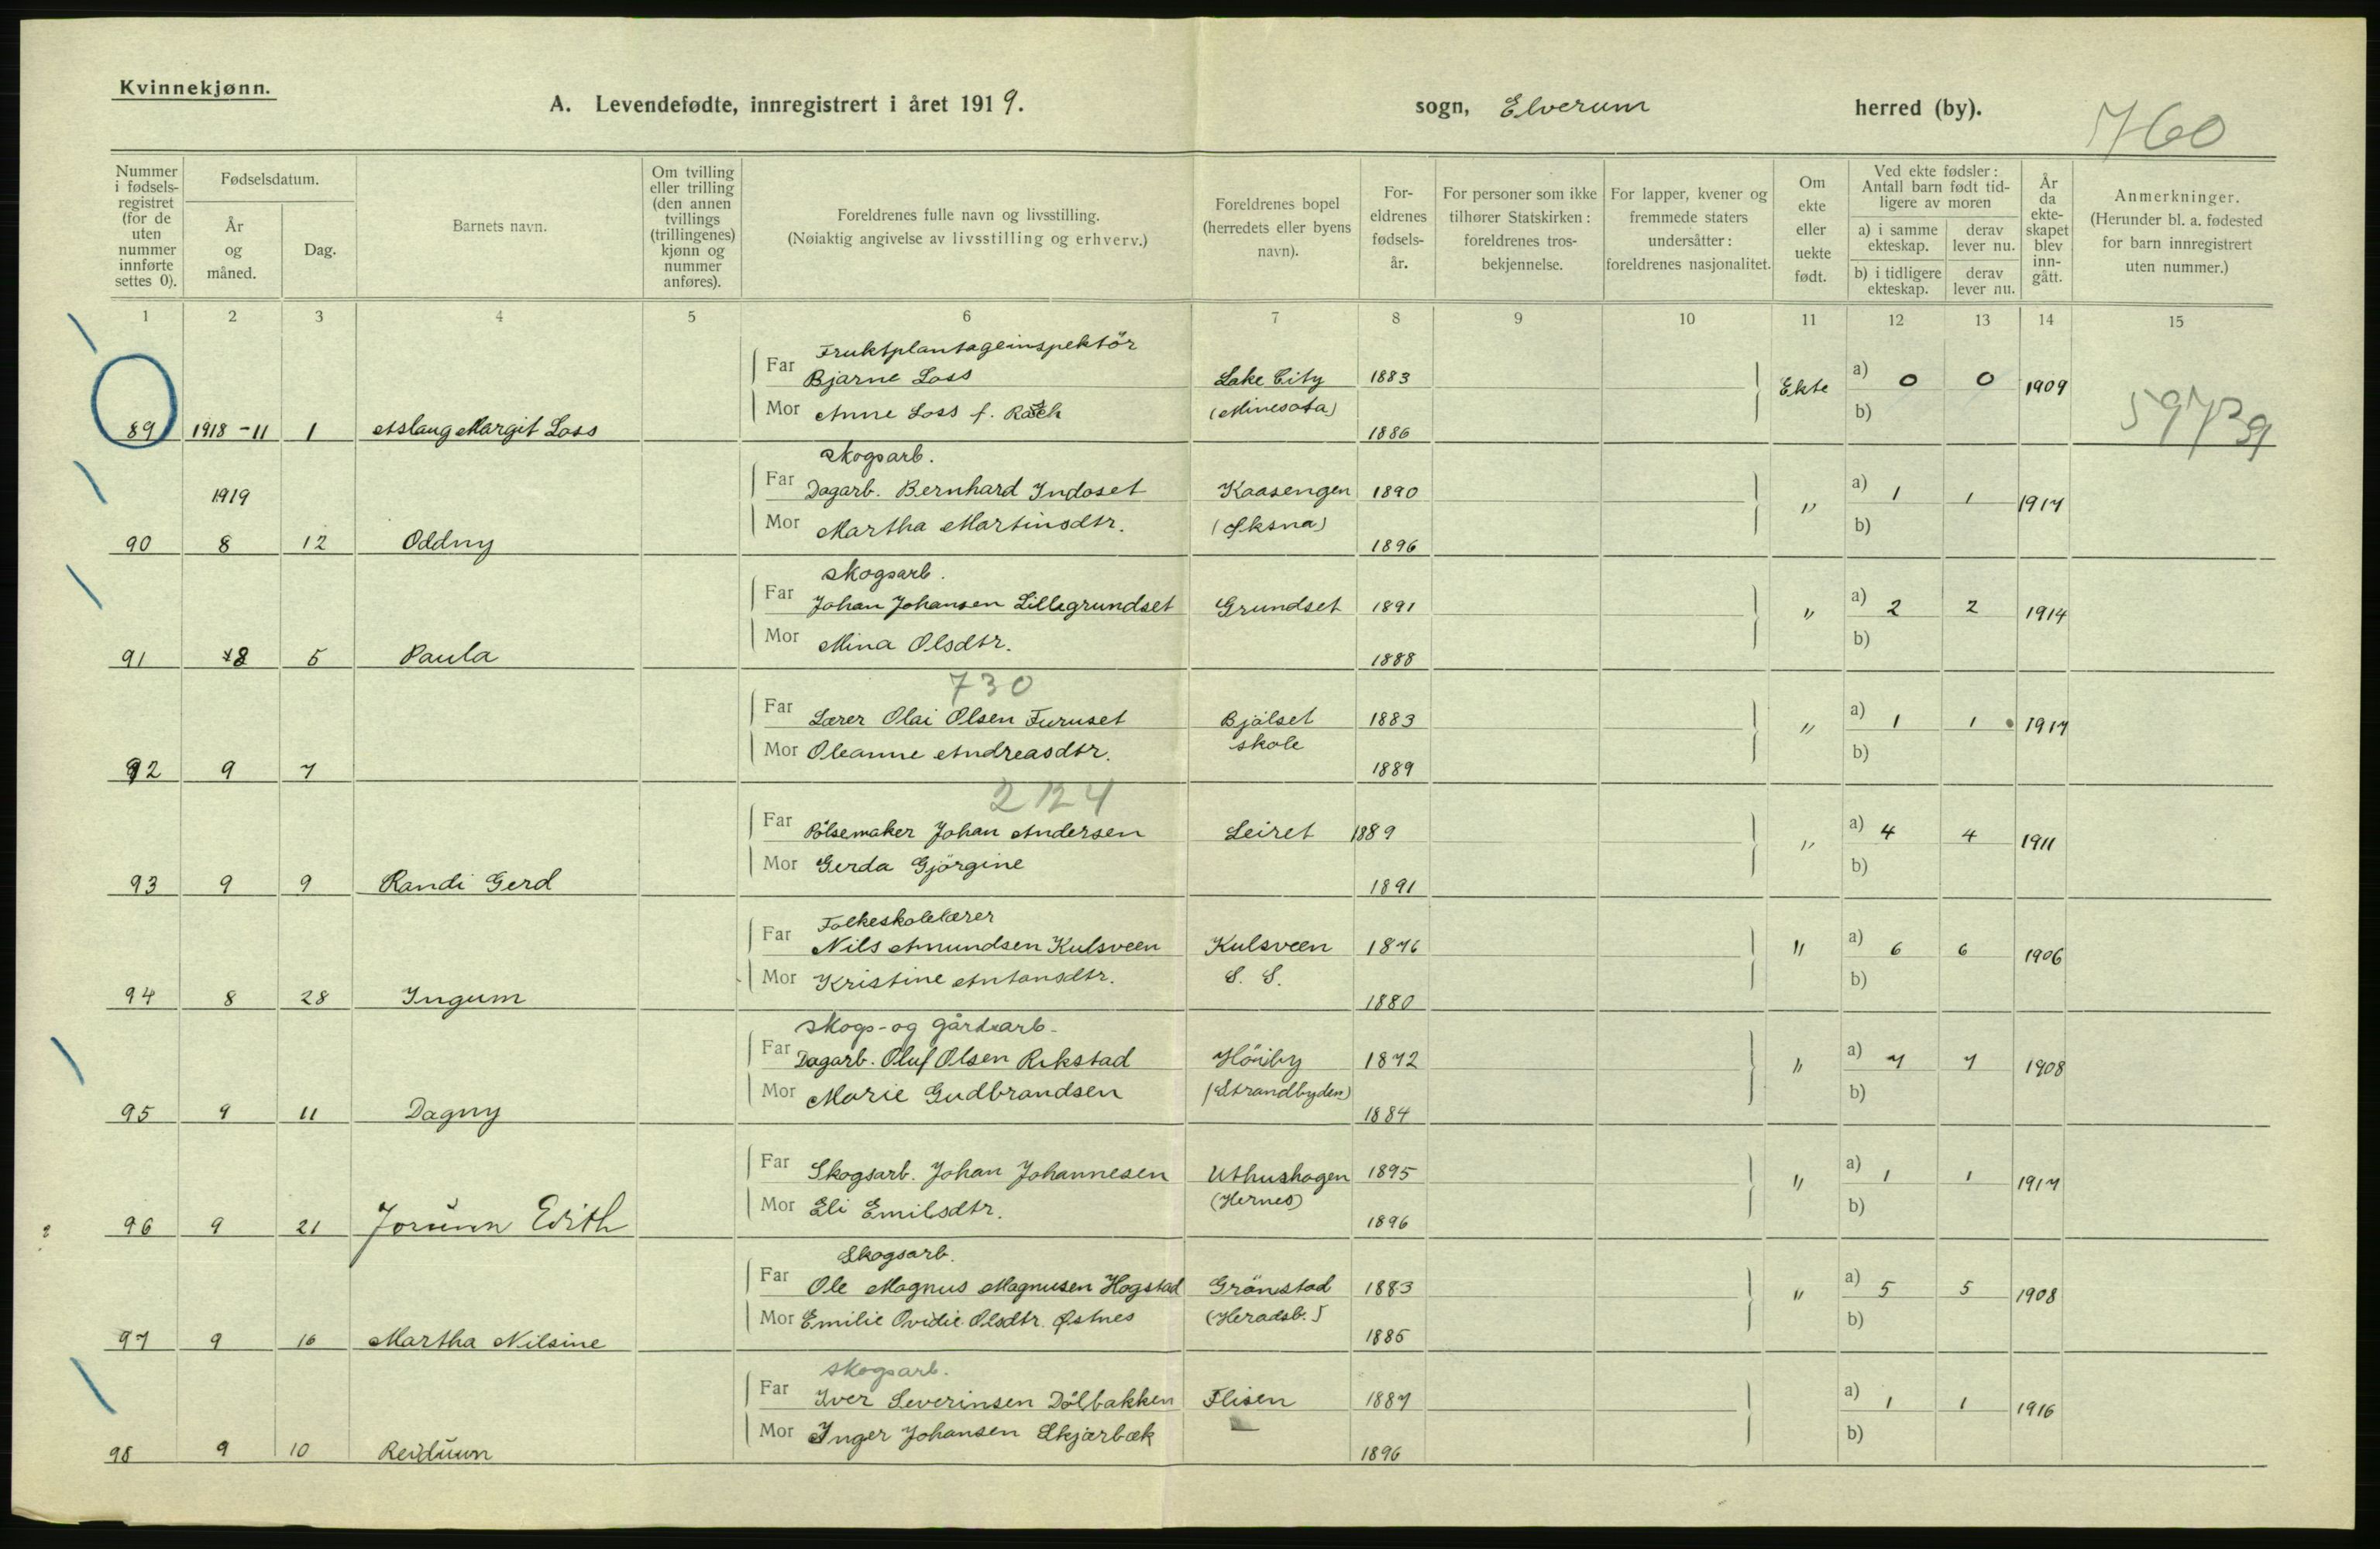 Kvinnekjønn.
A. Levendefødte, innregistrert i året 1919. sogn, Elverum herred (by).
760
Nummer i fødselsregistret (for de uten nummer innførte settes 0).
Fødselsdatum.
År og måned.
Dag.
Barnets navn.
Om tvilling eller trilling (den annen tvillings (trillingenes) kjønn og nummer anføres).
Foreldrenes fulle navn og livsstilling.
(Nøiaktig angivelse av livsstilling og erhverv.)
Foreldrenes bopel (herredets eller byens navn).
Foreldrenes fødselsår.
For personer som ikke tilhører Statskirken: foreldrenes trosbekjennelse.
For lapper, kvener og fremmede staters undersåtter: foreldrenes nasjonalitet.
Om ekte eller uekte født.
Ved ekte fødsler: Antall barn født tidligere av moren
a) i samme ekteskap. derav lever nu.
b) i tidligere ekteskap. derav lever nu.
År da ekteskapet blev inngått.
Anmerkninger.
(Herunder bl. a. fødested for barn innregistrert uten nummer.)
1 2 3 4 5 6 7 8 9 10 11 12 13 14 15
Fruktplantageinspektör
Far Bjarne Loss Lake City 1883 Ekte a) 0 0 1909
Mor Anne Loss f. Rasch (Minesota) 1886 b)
89 1918-11 1 Aslaug Margit Loss
Skogsarb.
Far Dagarb. Bernhard Indoset Kaasengen 1890 " a) 1 1 1917
1919
Mor Martha Martinsdtr. (Øksna) 1896 b)
90 8 12 Oddny
Skogsarb.
Far Johan Johansen Lillegrundset Grundset 1891 " a) 2 2 1914
Mor Mina Olsdtr. 1888 b)
91 8 5 Paula
730
Far Lærer Olai Olsen Furuset Bjölset 1883 " a) 1 1 1917
Mor Oleanne Andreasdtr. skole 1889 b)
92 9 7
2124
Far Pölsemaker Johan Andersen Leiret 1889 " a) 4 4 1911
Mor Gerda Gjörgine 1891 b)
93 9 9 Randi Gerd
Folkeskolelærer
Far Nils Amundsen Kulsveen Kulsveen 1876 " a) 6 6 1906
Mor Kristine Antonsdtr. S. S. 1880 b)
94 8 28 Ingum
Skogs- og gårdsarb.
Far Dagarb. Oluf Olsen Rikstad Höiby 1872 " a) 7 7 1908
Mor Marie Gudbrandsen (Strandbyden) 1884 b)
95 9 11 Dagny
Far Skogsarb. Johan Johannesen Uthushagen 1895 " a) 1 1 1917
Mor Eli Emilsdtr. (Hernes) 1896 b)
96 9 21 Jorunn Edith
Skogsarb.
Far Ole Magnus Magnusen Hogstad Grönstad 1883 " a) 5 5 1908
Mor Emilie Ovidie Olsdtr. Østnes (Heradsb.) 1885 b)
97 9 16 Martha Nilsine
Skogsarb.
Far Iver Severinsen Dölbakken Flisen 1887 a) 1 1 1916
Mor Inger Johansen Skjærbæk 1896 b)
98 9 10 Reidunn